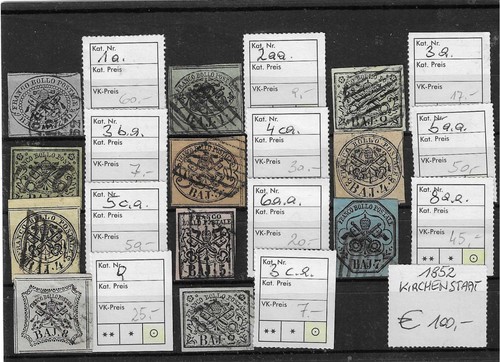 Kat. Nr. 1a.
Kat. Preis
VK-Preis 60.-
Kat. Nr. 2aa.
Kat. Preis
VK-Preis 9.-
Kat. Nr. 3a.
Kat. Preis
VK-Preis 17.-
FRANCO BOLLO POSTALE
BAJ. 1
BAJ. 2
Kat. Nr. 3b.a.
Kat. Preis
VK-Preis 7.-
Kat. Nr. 4ca.
Kat. Preis
VK-Preis 30.-
Kat. Nr. 5a.a.
Kat. Preis
VK-Preis 50.-
BAJ. 3
BAJ. 4
Kat. Nr. 5c.a.
Kat. Preis
VK-Preis 50.-
Kat. Nr. 6a.a.
Kat. Preis
VK-Preis 20.-
Kat. Nr. 8a.a.
Kat. Preis
VK-Preis 45.-
** * ⊙
BAJ. 4
FRANCO
BAJ. 5
BAJ. 7
Kat. Preis
VK-Preis 25.-
** * ⊙
3c.a.
Kat. Preis
VK-Preis 7.-
** * ⊙
BAJ. 8
BAJ. 2
1852
KIRCHENSTAAT
€ 100,-